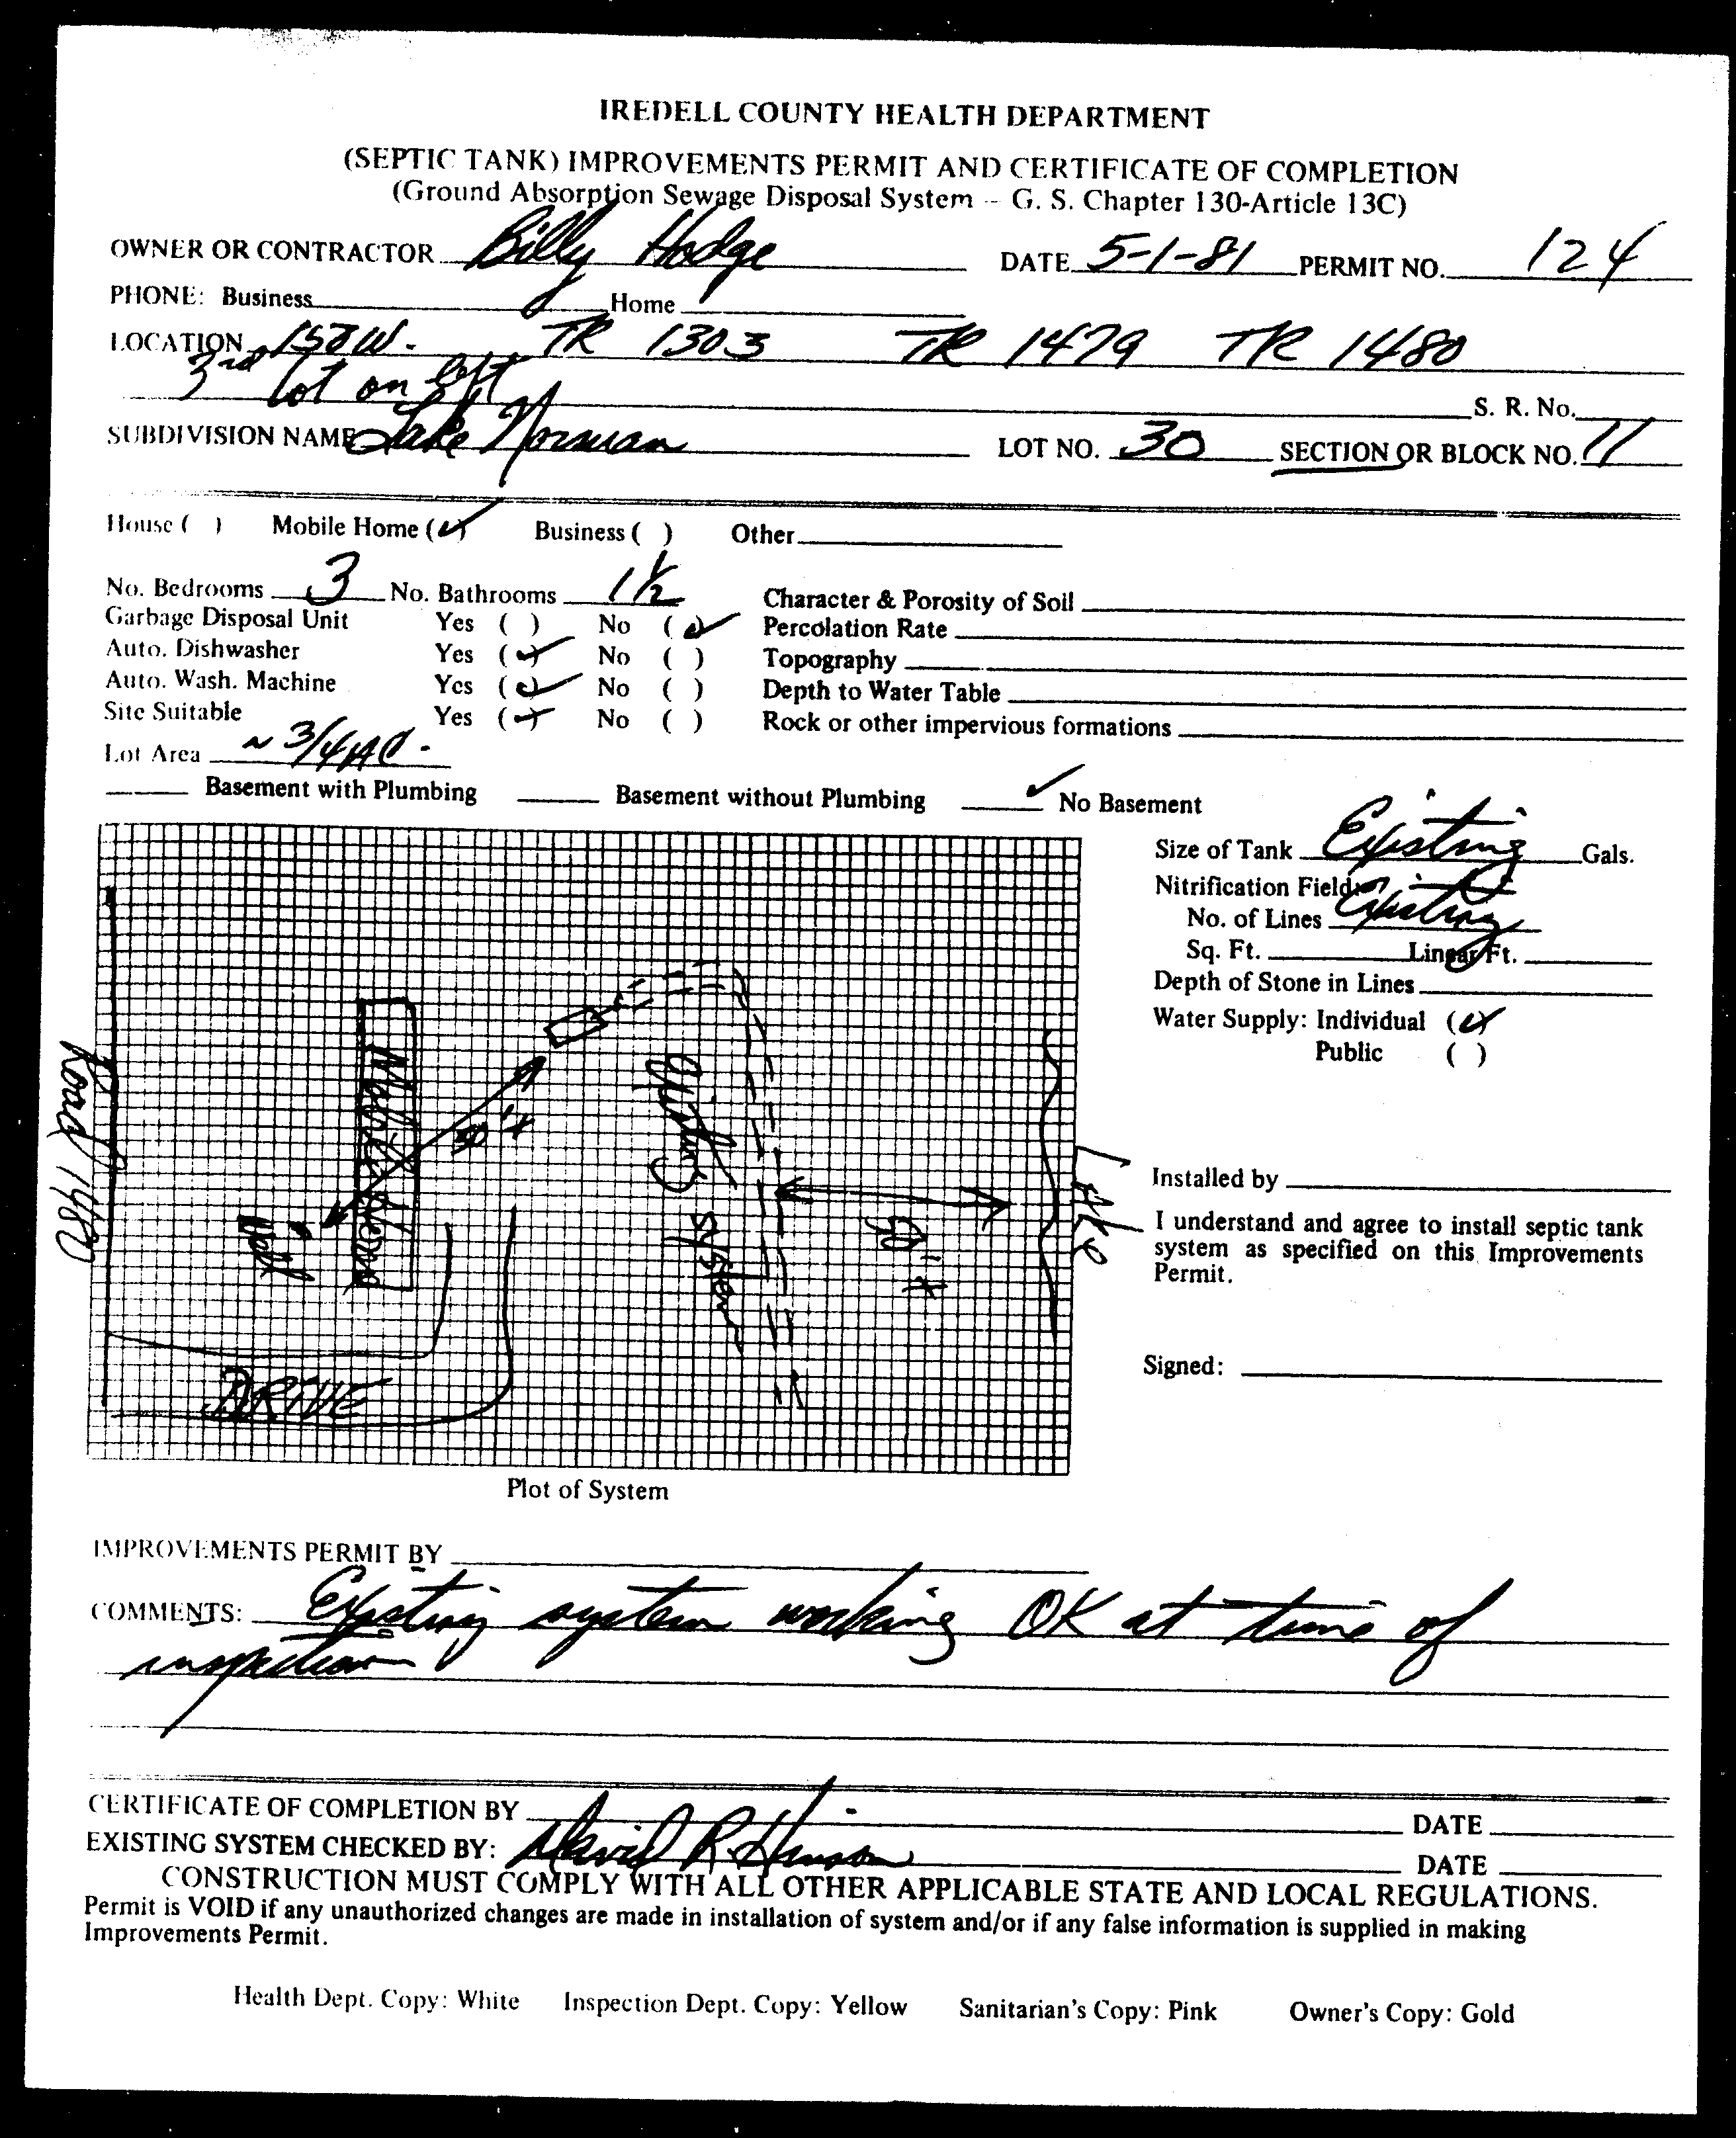 IREDELL COUNTY HEALTH DEPARTMENT
(SEPTIC TANK) IMPROVEMENTS PERMIT AND CERTIFICATE OF COMPLETION
(Ground Absorption Sewage Disposal System -- G. S. Chapter 130-Article 13C)
OWNER OR CONTRACTOR Billy Hodge DATE 5-1-81 PERMIT NO. 124
PHONE: Business Home
LOCATION 150W. TR 1303 TR 1479 TR 1480
3rd lot on left S. R. No.
SUBDIVISION NAME Lake Norman LOT NO. 30 SECTION OR BLOCK NO. 11
House ( ) Mobile Home (✓) Business ( ) Other
No. Bedrooms 3 No. Bathrooms 1 1/2 Character & Porosity of Soil
Garbage Disposal Unit Yes ( ) No (✓) Percolation Rate
Auto. Dishwasher Yes (✓) No ( ) Topography
Auto. Wash. Machine Yes (✓) No ( ) Depth to Water Table
Site Suitable Yes (✓) No ( ) Rock or other impervious formations
Lot Area ~ 3/4 AC.
Basement with Plumbing Basement without Plumbing ✓ No Basement
Size of Tank Existing Gals.
Nitrification Field:
No. of Lines Existing
Sq. Ft. Linear Ft.
Depth of Stone in Lines
Water Supply: Individual (✓)
Public ( )
Road 1480
Mobile Home
Well
50'±
Existing system
50'±
Lake
DRIVE
Installed by
I understand and agree to install septic tank
system as specified on this Improvements
Permit.
Signed:
Plot of System
IMPROVEMENTS PERMIT BY
COMMENTS: Existing system working OK at time of
inspection
CERTIFICATE OF COMPLETION BY DATE
EXISTING SYSTEM CHECKED BY: David R. Hinson DATE
CONSTRUCTION MUST COMPLY WITH ALL OTHER APPLICABLE STATE AND LOCAL REGULATIONS.
Permit is VOID if any unauthorized changes are made in installation of system and/or if any false information is supplied in making
Improvements Permit.
Health Dept. Copy: White Inspection Dept. Copy: Yellow Sanitarian's Copy: Pink Owner's Copy: Gold